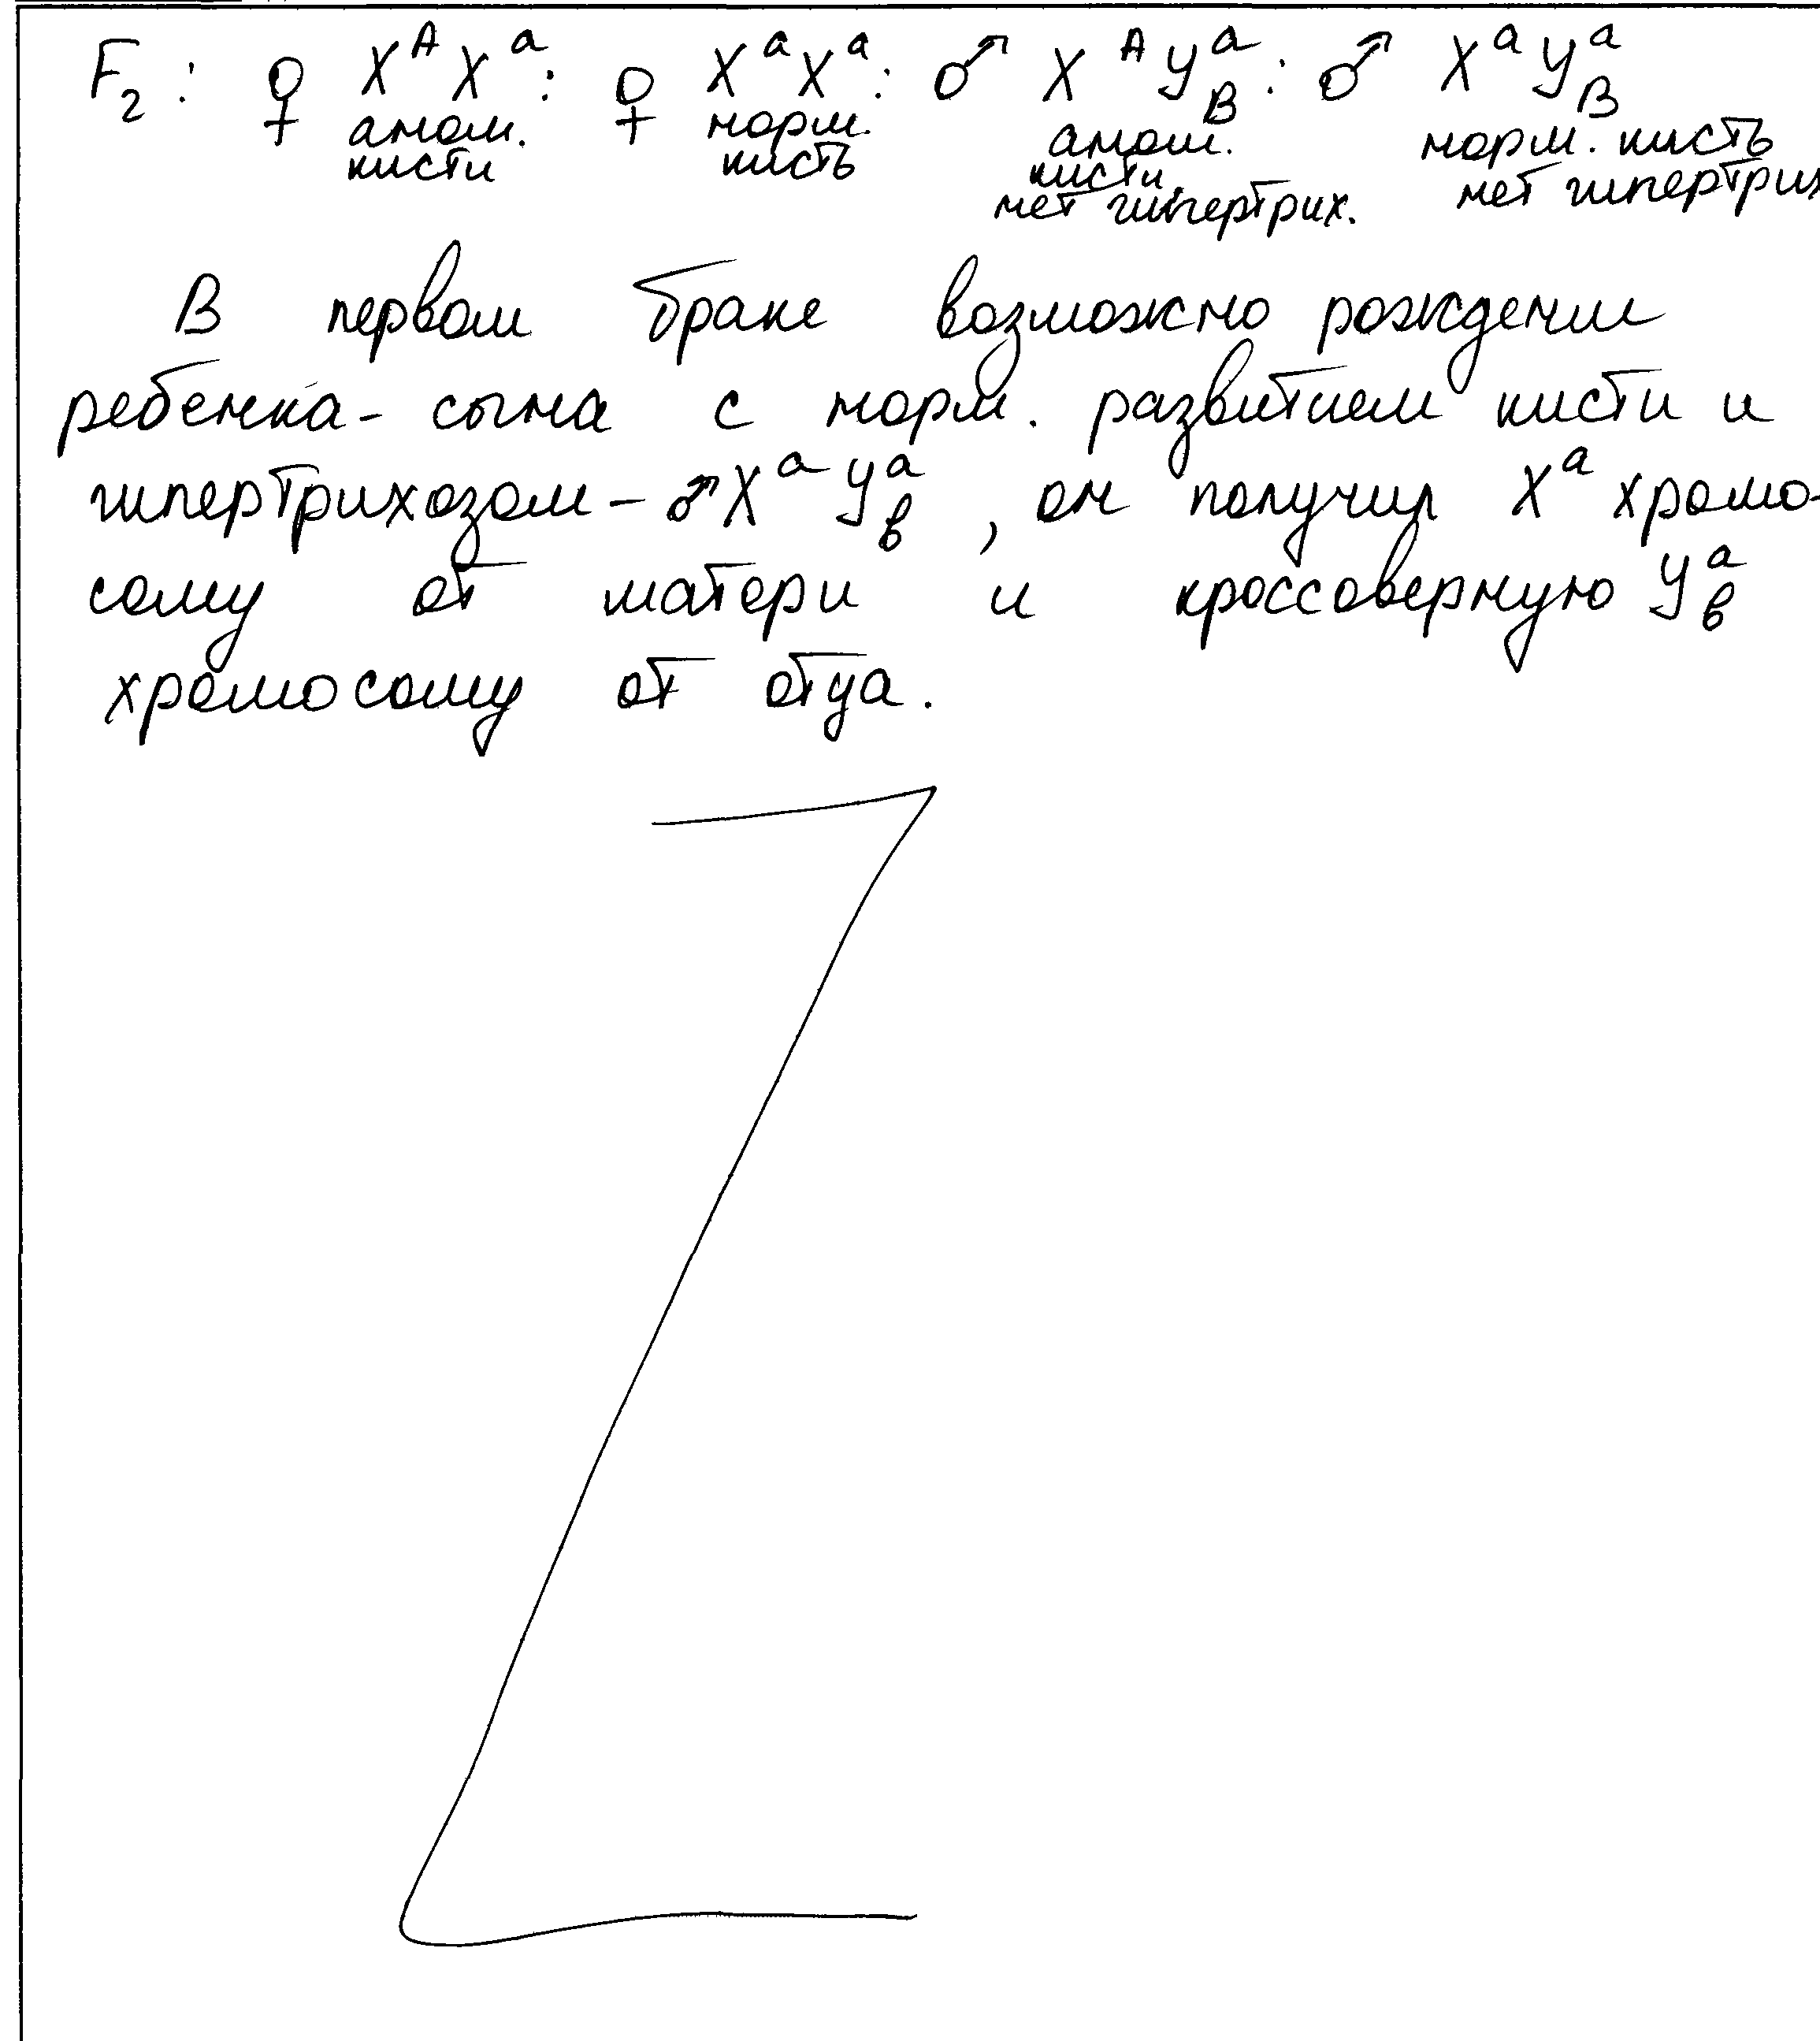 F₂: ♀ Xᴬ Xᵃ : ♀ Xᵃ Xᵃ : ♂ Xᴬ Yᵃ_B : ♂ Xᵃ Yᵃ_B
аном. норм. аном. норм. кисть
кисти кисть кисти, нет гипертрих
нет гипертрих.
В первом браке возможно рождении
ребенка - сына с норм. развитием кисти и
гипертрихозом - ♂ Xᵃ Yᵃ_b , он получил Xᵃ хромо-
сому от матери и кроссоверную Yᵃ_b
хромосому от отца.